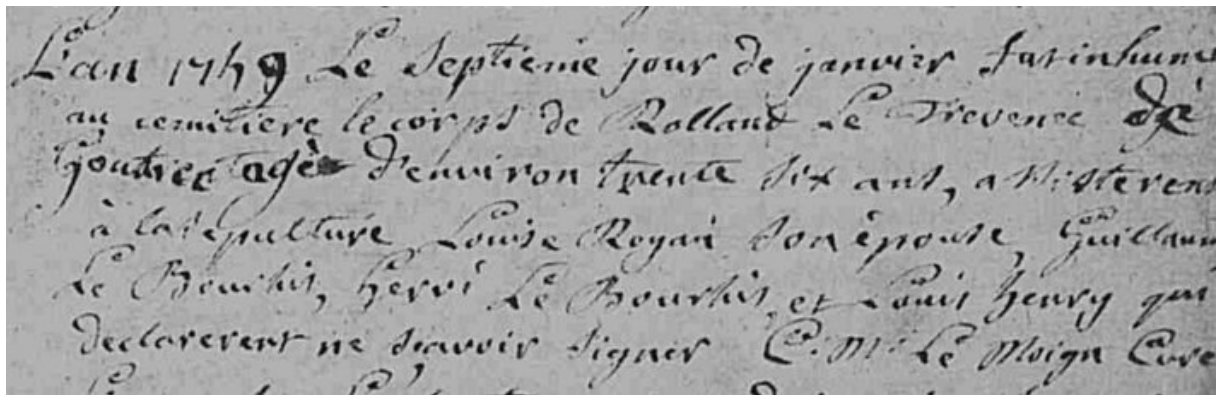 L'an 1749 Le Septieme jour de janvier fut inhumé
au cemitiere le corps de Rolland Le Trevenec de
agè d'environ trente six ans, assisterent
à la sepulture Louise Rogan son épouse, Guillaum
Le Bourhis, hervé Le Bourhis, et Louis henry qui
declarerent ne scavoir signer C. M. Le Moign Curé